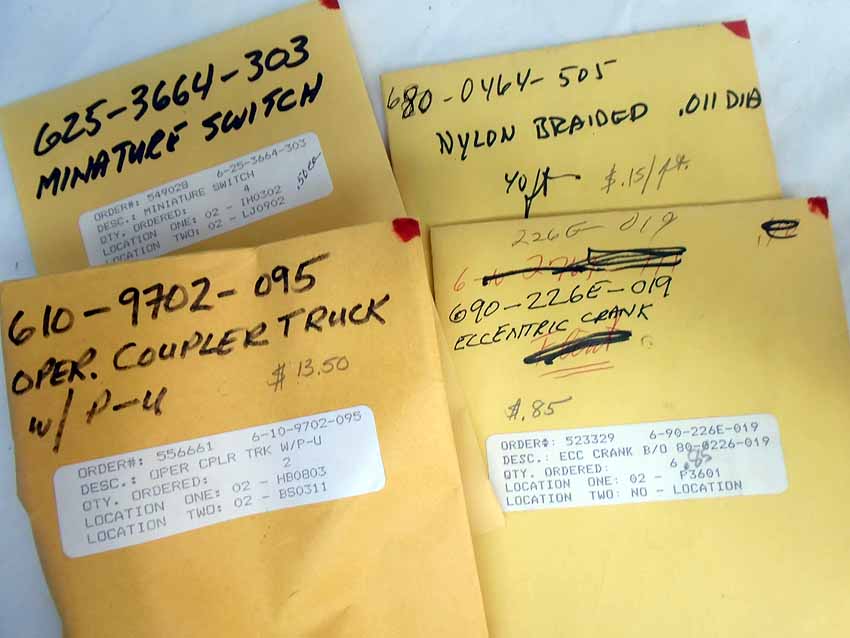 625-3664-303
MINATURE SWITCH
ORDER#: 549028 6-25-3664-303
DESC.: MINIATURE SWITCH
QTY. ORDERED: 4
LOCATION ONE: 02 - IH0302
LOCATION TWO: 02 - LJ0902
.50 ea
680-0464-505
NYLON BRAIDED .011 DIA
40ft $.15/ft.
610-9702-095
OPER. COUPLER TRUCK
w/ P-U $13.50
ORDER#: 556661 6-10-9702-095
DESC.: OPER CPLR TRK W/P-U
QTY. ORDERED: 2
LOCATION ONE: 02 - HB0803
LOCATION TWO: 02 - BS0311
226E-019
690-226E-019
ECCENTRIC CRANK
$.85
ORDER#: 523329 6-90-226E-019
DESC.: ECC CRANK B/O 80-0226-019
QTY. ORDERED: 6 .85
LOCATION ONE: 02 - P3601
LOCATION TWO: NO - LOCATION